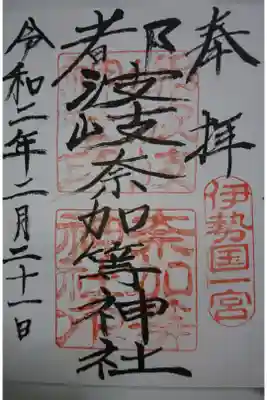 奉拝
伊勢国一宮
都波岐奈加等神社
令和二年二月二十一日